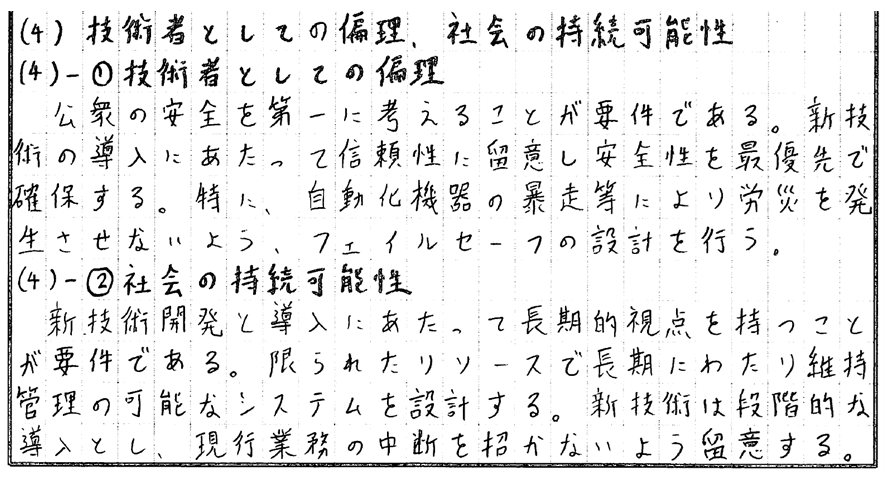 (4) 技術者としての偏理、社会の持続可能性
(4)-①技術者としての偏理
公衆の安全を第一に考えることが要件である。新技
術の導入にあたって信頼性に留意し安全性を最優先で
確保する。特に、自動化機器の暴走等により労災を発
生させないよう、フェイルセーフの設計を行う。
(4)-②社会の持続可能性
新技術開発と導入にあたって長期的視点を持つこと
が要件である。限られたリソースで長期にわたり維持
管理の可能なシステムを設計する。新技術は段階的な
導入とし、現行業務の中断を招かないよう留意する。